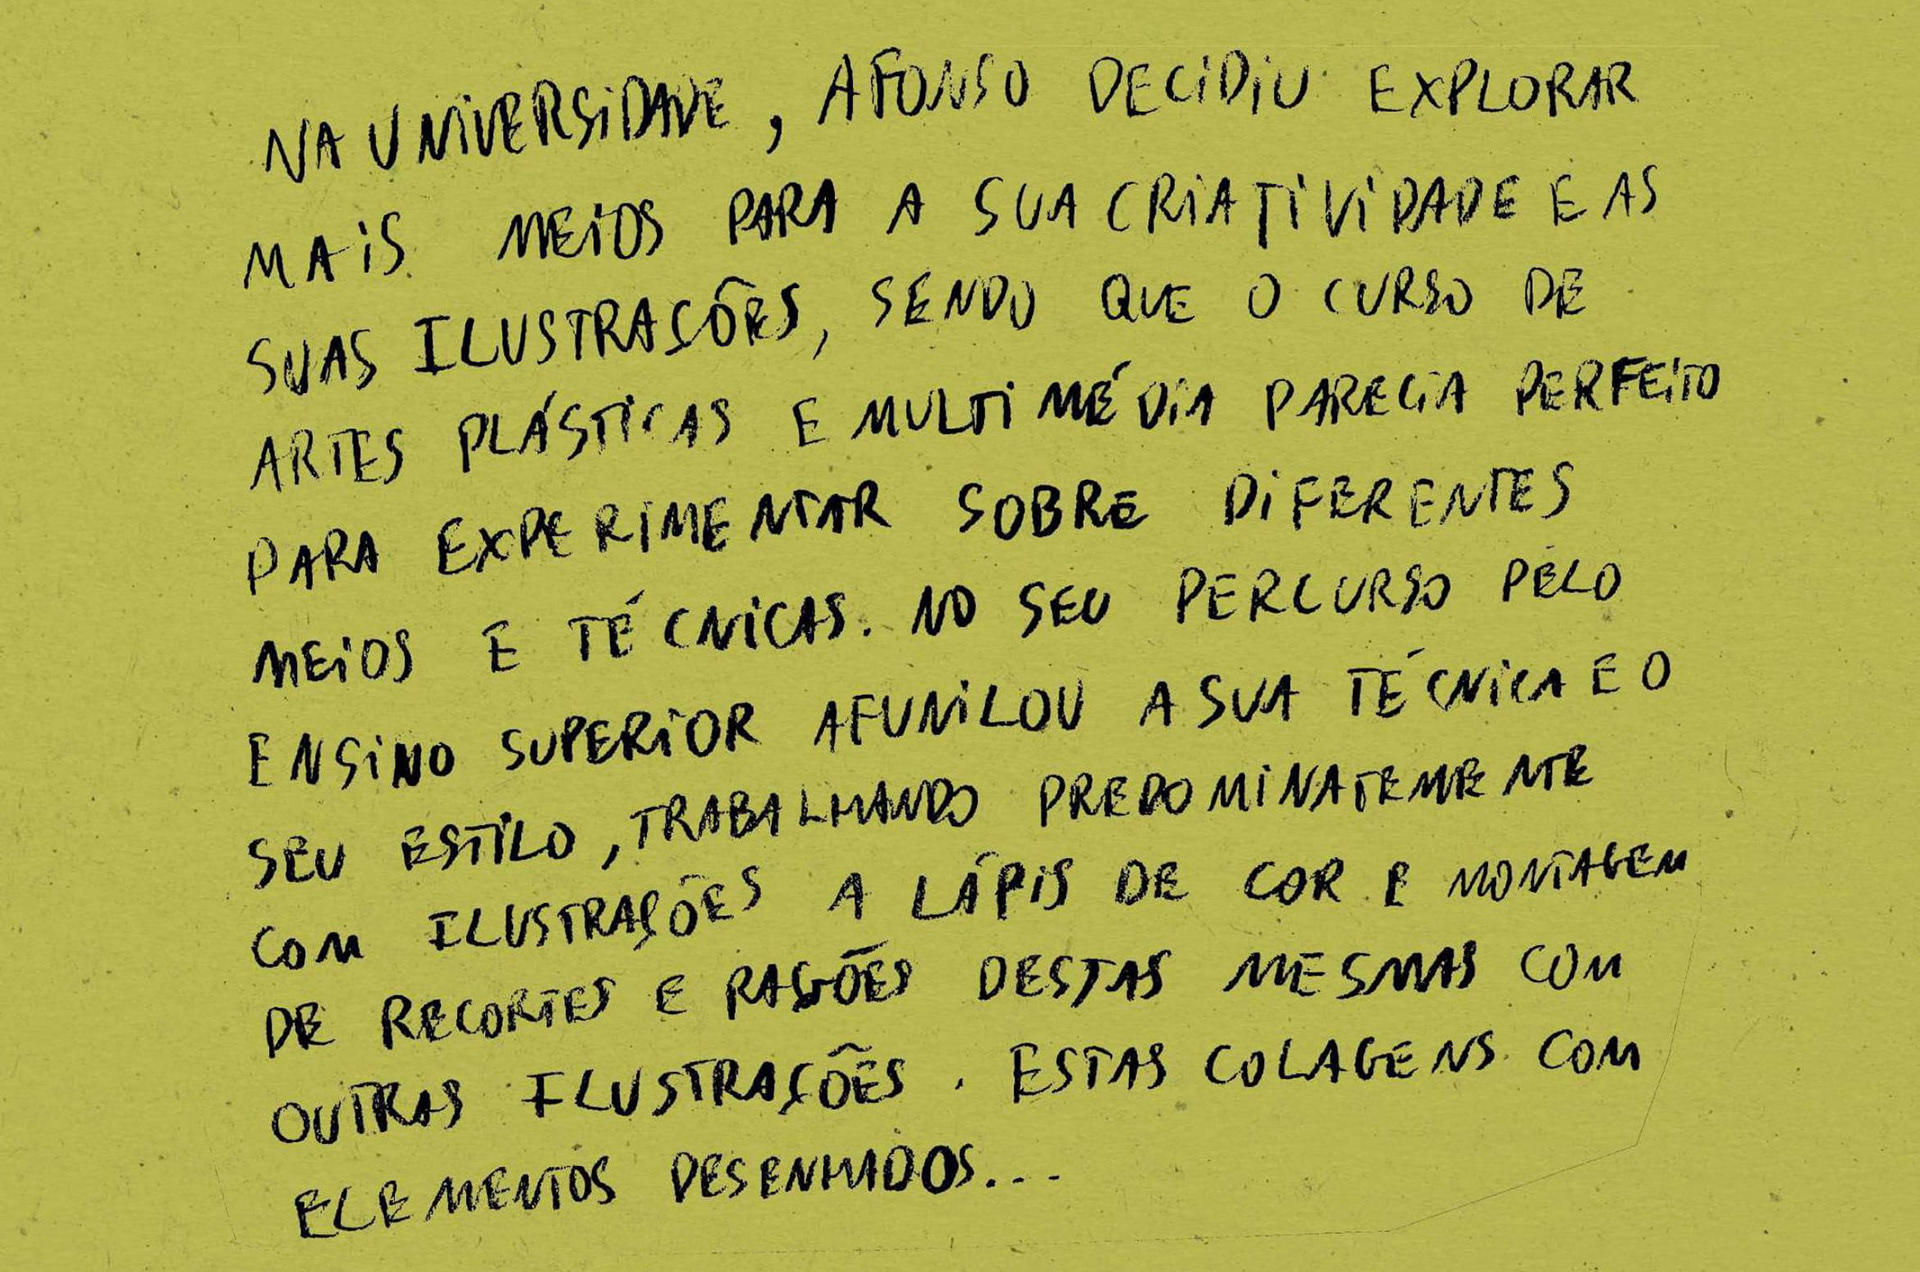 NA UNIVERSIDADE, AFONSO DECIDIU EXPLORAR
MAIS MEIOS PARA A SUA CRIATIVIDADE E AS
SUAS ILUSTRAÇÕES, SENDO QUE O CURSO DE
ARTES PLÁSTICAS E MULTIMÉDIA PARECIA PERFEITO
PARA EXPERIMENTAR SOBRE DIFERENTES
MEIOS E TÉCNICAS. NO SEU PERCURSO PELO
ENSINO SUPERIOR AFUNILOU A SUA TÉCNICA E O
SEU ESTILO, TRABALHANDO PREDOMINATEMENTE
COM ILUSTRAÇÕES A LÁPIS DE COR E MONTAGEM
DE RECORTES E RASGÕES DESTAS MESMAS COM
OUTRAS ILUSTRAÇÕES. ESTAS COLAGENS COM
ELEMENTOS DESENHADOS...